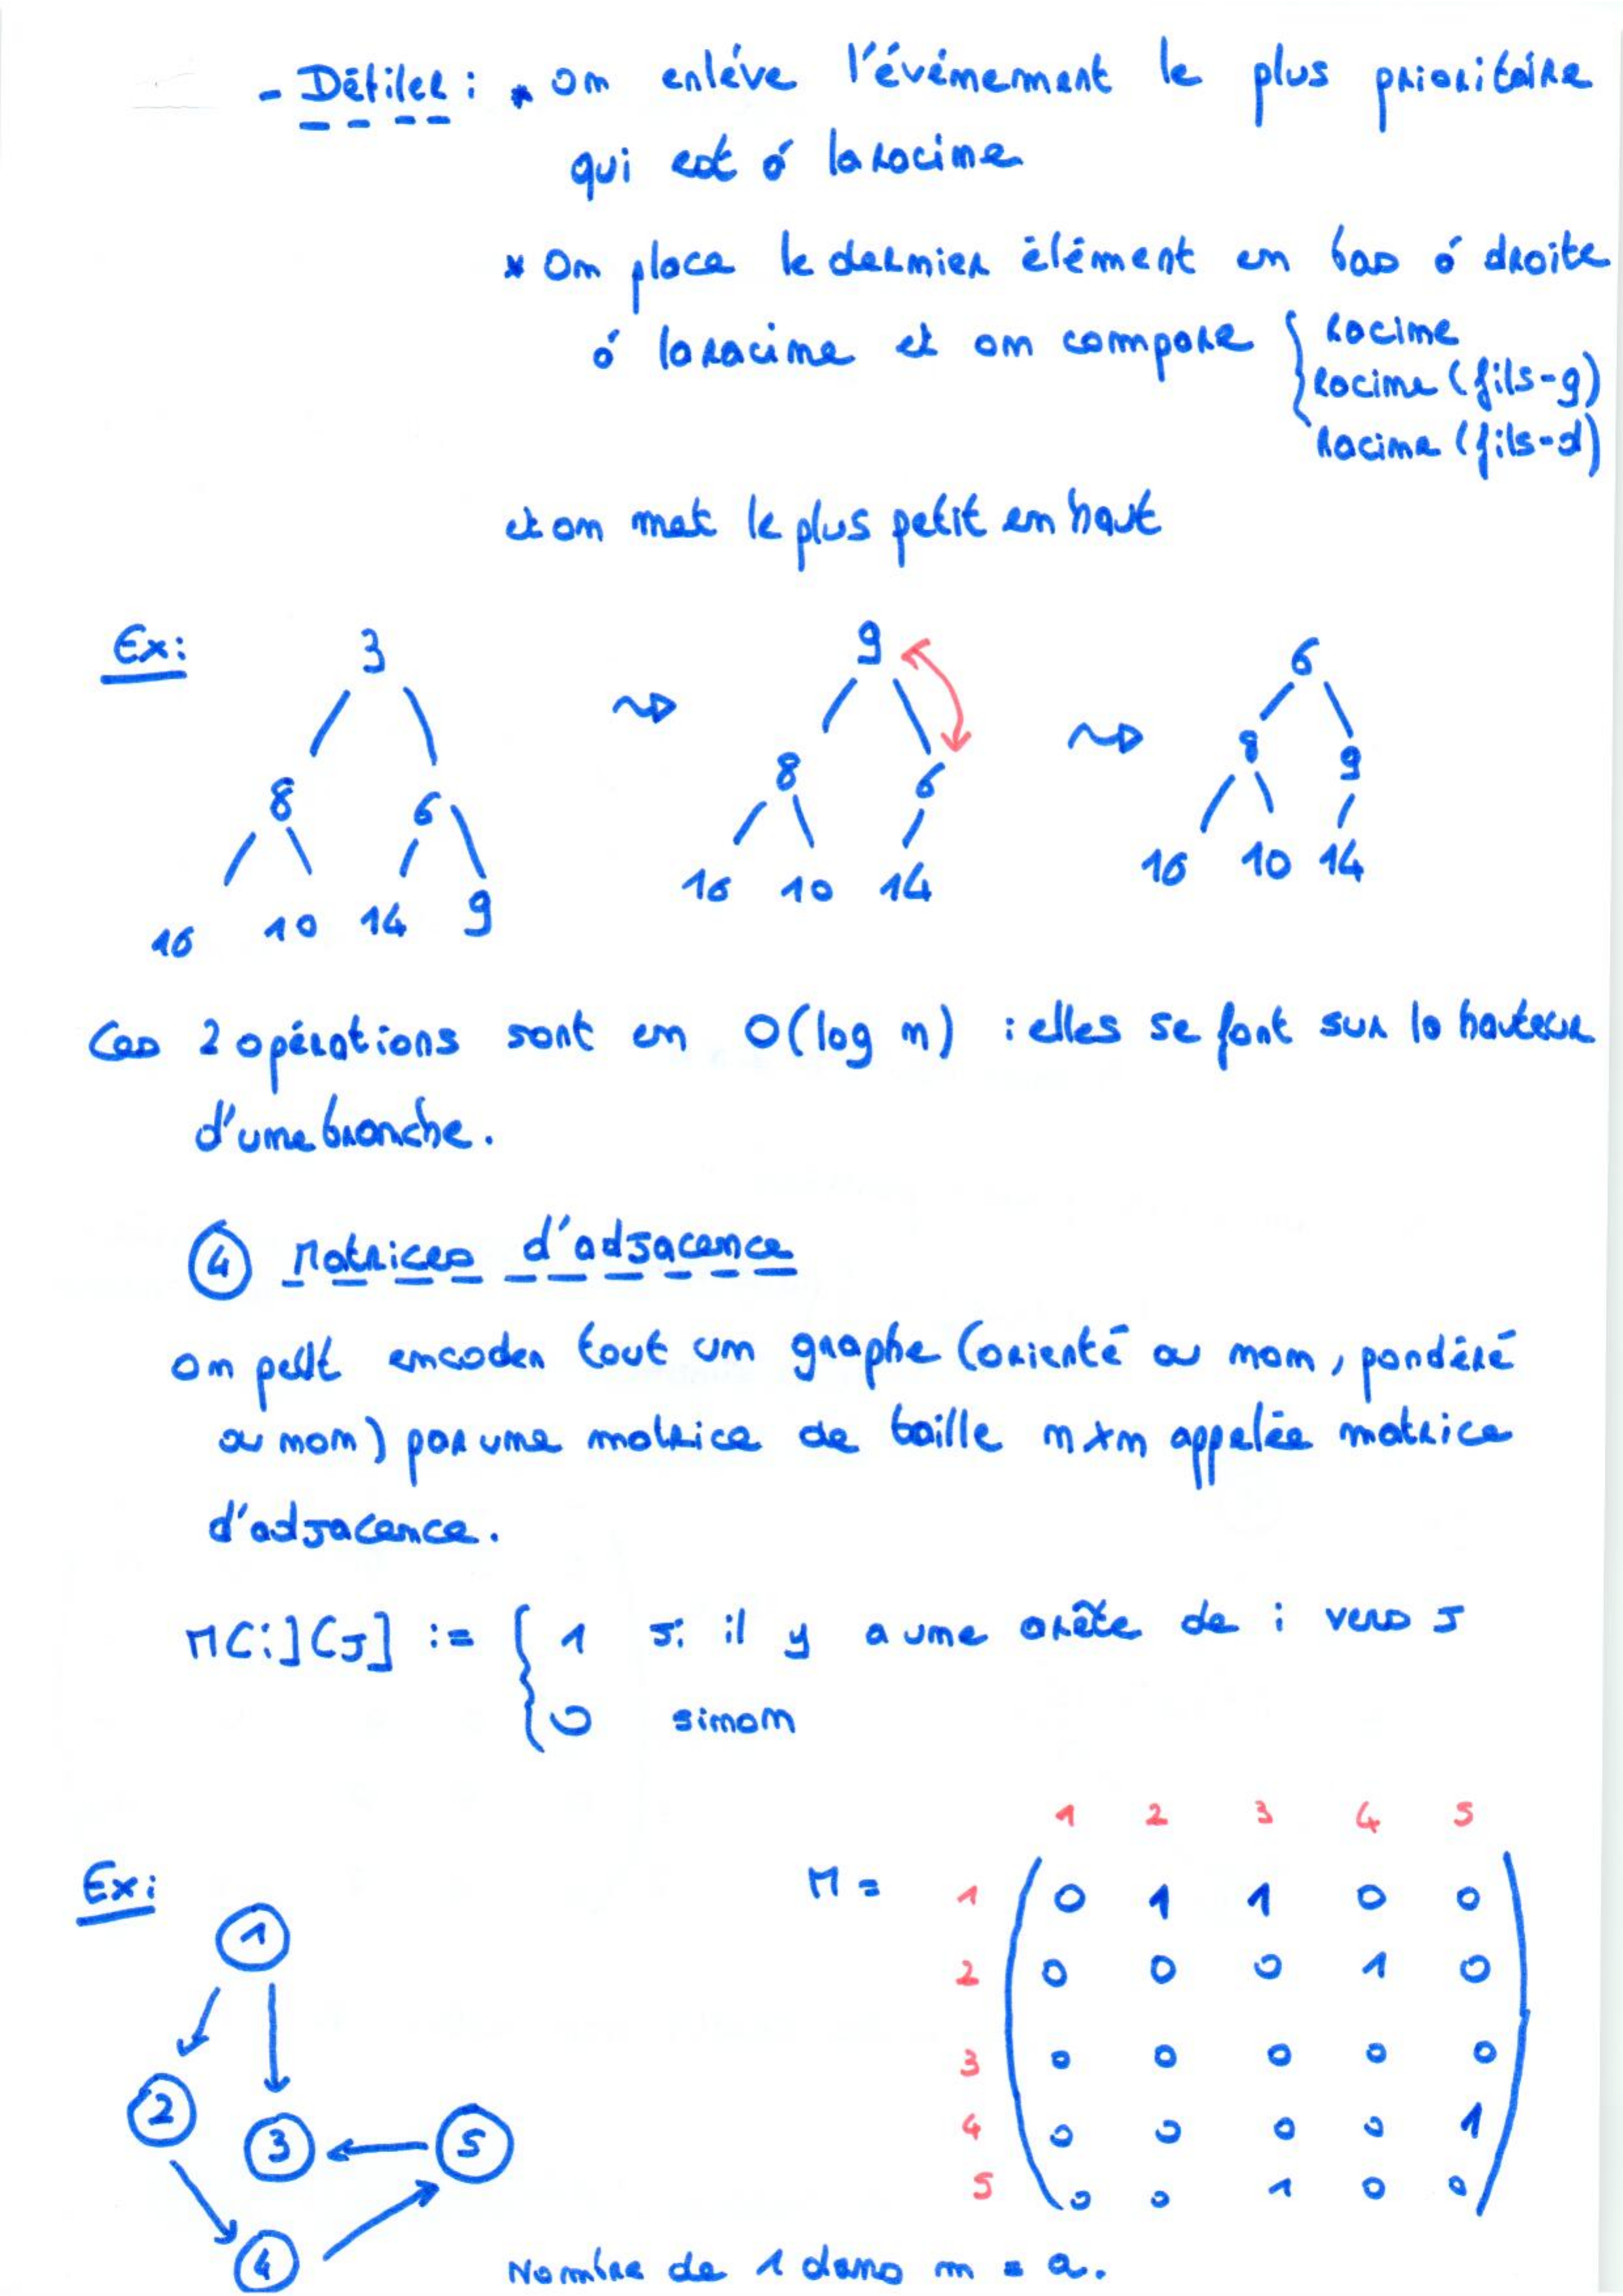 - Défiler : * on enlève l'événement le plus prioritaire
qui est à la racine
* On place le dernier élément en bas à droite
à la racine et on compare { racine
racine (fils-g)
racine (fils-d)
et on met le plus petit en haut
Ex:
3 ⇝ 9 ⇝ 6
8 6 8 6 8 9
16 10 14 9 16 10 14 16 10 14
Ces 2 opérations sont en O(log n) : elles se font sur la hauteur
d'une branche.
④ Matrices d'adjacence
on peut encoder tout un graphe (orienté ou non, pondéré
ou non) par une matrice de taille n×n appelée matrice
d'adjacence.
M[i][J] := { 1 si il y a une arête de i vers J
0 sinon
1 2 3 4 5
Ex: M =
1 0 1 1 0 0
2 0 0 0 1 0
3 0 0 0 0 0
4 0 0 0 0 1
5 0 0 1 0 0
1
2 3 5
4
Nombre de 1 dans m = a.